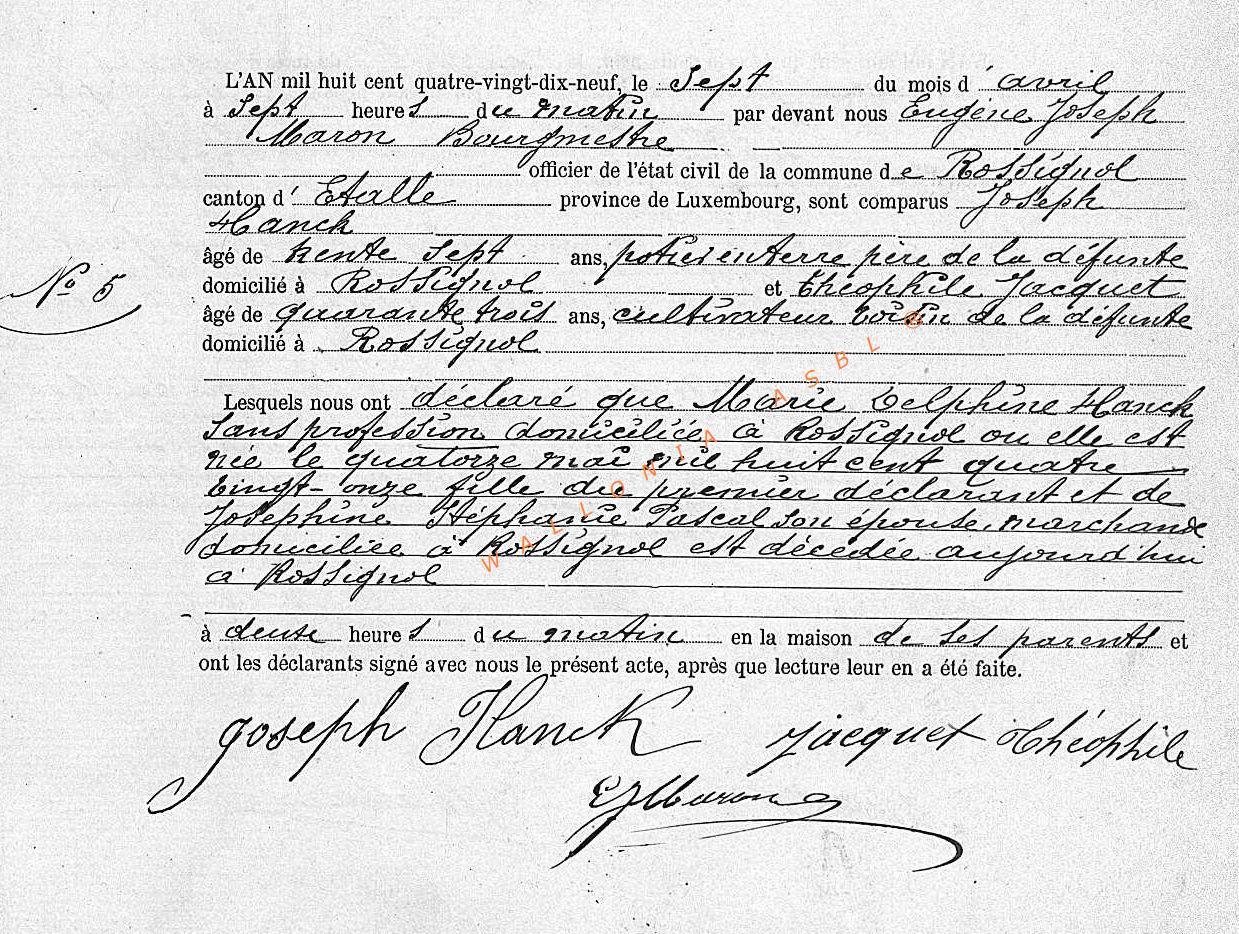 L'AN mil huit cent quatre-vingt-dix-neuf, le Sept du mois d' avril
à Sept heures du matin par devant nous Eugène Joseph
Maron Bourgmestre
officier de l'état civil de la commune de Rossignol
canton d' Etalle province de Luxembourg, sont comparus Joseph
Hanck
âgé de trente sept ans, potier en terre père de la défunte
N° 5
domicilié à Rossignol et Théophile Jacquet
âgé de quarante trois ans, cultivateur voisin de la défunte
domicilié à Rossignol
Lesquels nous ont déclaré que Marie Delphine Hanck
sans profession domiciliée à Rossignol ou elle est
née le quatorze mai mil huit cent quatre
vingt-onze fille du premier déclarant et de
Joséphine Stéphanie Pascal son épouse, marchande
domiciliée à Rossignol est décédée aujourd'hui
à Rossignol
à deux heures du matin en la maison de ses parents et
ont les déclarants signé avec nous le présent acte, après que lecture leur en a été faite.
Joseph Hanck Jacquet Théophile
EJMaron
WALLONIA ASBL